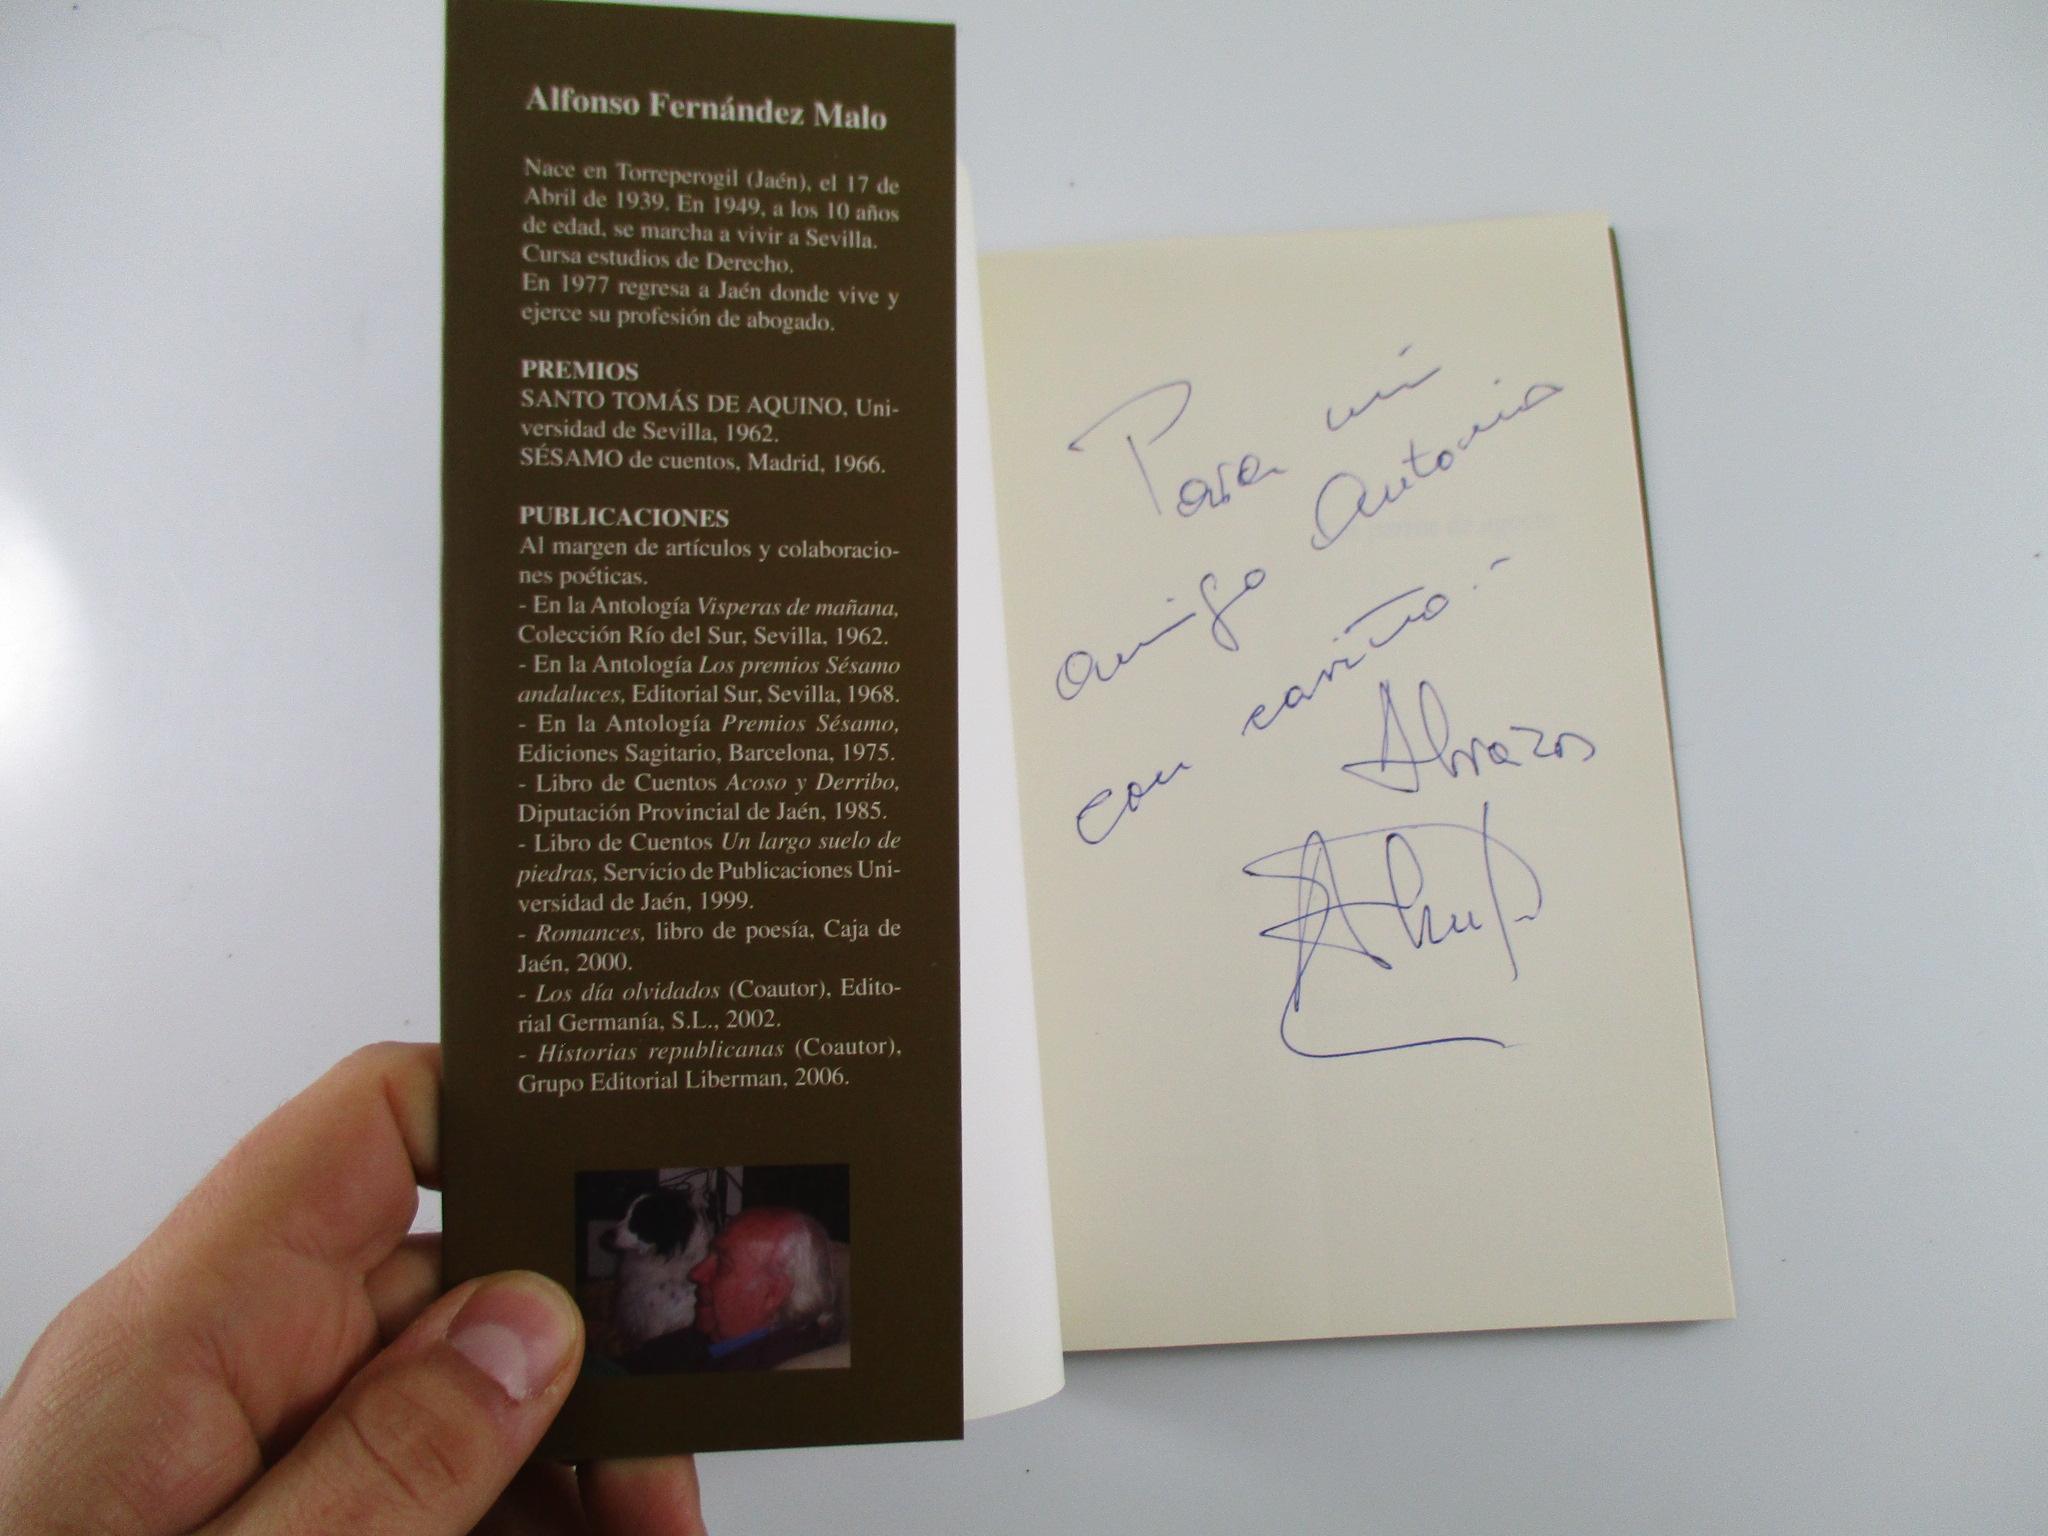 Alfonso Fernández Malo
Nace en Torreperogil (Jaén), el 17 de
Abril de 1939. En 1949, a los 10 años
de edad, se marcha a vivir a Sevilla.
Cursa estudios de Derecho.
En 1977 regresa a Jaén donde vive y
ejerce su profesión de abogado.
PREMIOS
SANTO TOMÁS DE AQUINO, Uni-
versidad de Sevilla, 1962.
SÉSAMO de cuentos, Madrid, 1966.
PUBLICACIONES
Al margen de artículos y colaboracio-
nes poéticas.
- En la Antología Visperas de mañana,
Colección Río del Sur, Sevilla, 1962.
- En la Antología Los premios Sésamo
andaluces, Editorial Sur, Sevilla, 1968.
- En la Antología Premios Sésamo,
Ediciones Sagitario, Barcelona, 1975.
- Libro de Cuentos Acoso y Derribo,
Diputación Provincial de Jaén, 1985.
- Libro de Cuentos Un largo suelo de
piedras, Servicio de Publicaciones Uni-
versidad de Jaén, 1999.
- Romances, libro de poesía, Caja de
Jaén, 2000.
- Los día olvidados (Coautor), Edito-
rial Germanía, S.L., 2002.
- Historias republicanas (Coautor),
Grupo Editorial Liberman, 2006.
Para mi
amigo Antonio
con cariño.-
Abrazos